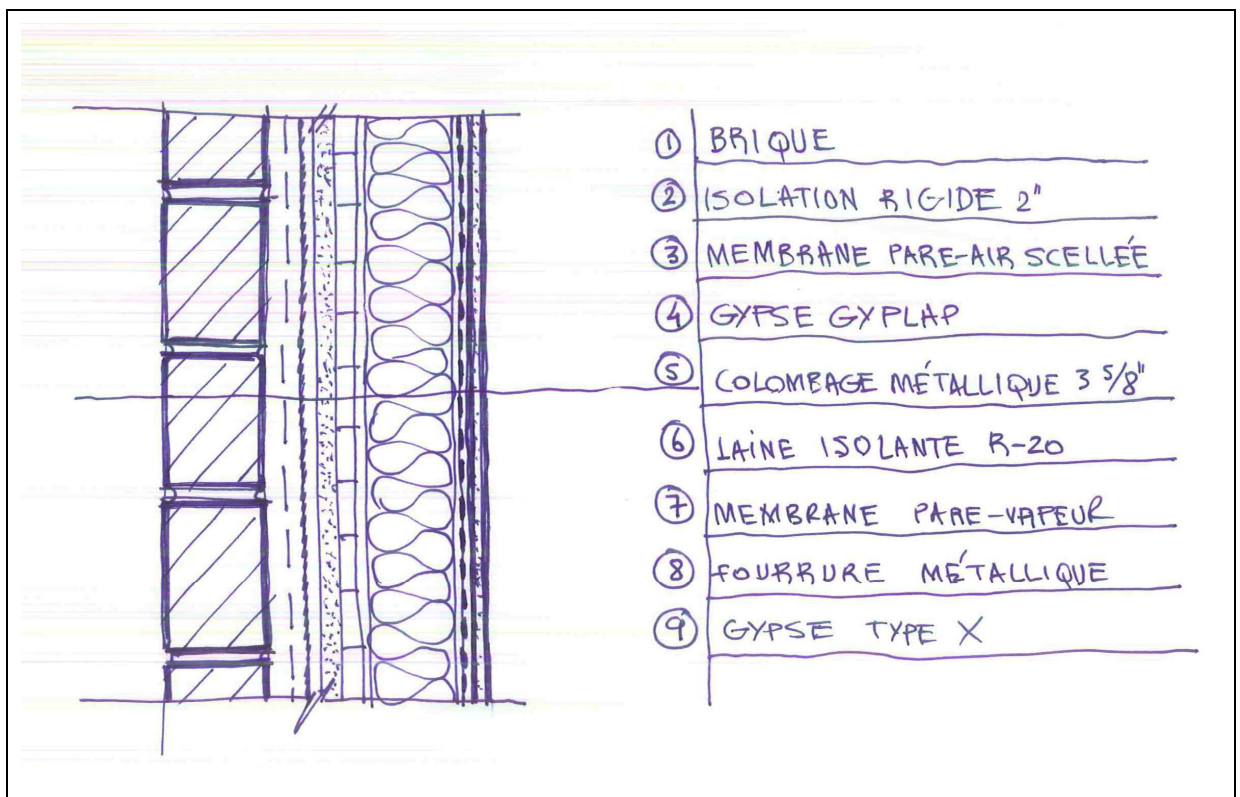 ① BRIQUE
② ISOLATION RIGIDE 2"
③ MEMBRANE PARE-AIR SCELLÉE
④ GYPSE GYPLAP
⑤ COLOMBAGE MÉTALLIQUE 3 5/8"
⑥ LAINE ISOLANTE R-20
⑦ MEMBRANE PARE-VAPEUR
⑧ FOURRURE MÉTALLIQUE
⑨ GYPSE TYPE X